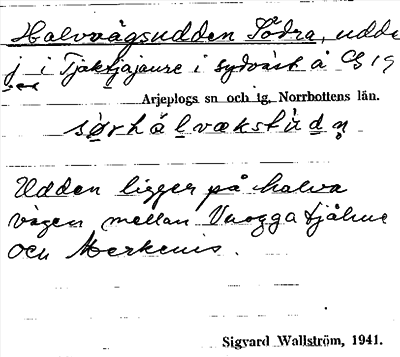 Halvvägsudden Södra, udde
i Tjaktjajaure i sydväst å G 19
Arjeplogs sn och tg, Norrbottens län.
sørhálvækstùdn̥
Udden ligger på halva
vägen mellan Vuoggatjålme
och Merkenis.
Sigvard Wallström, 1941.